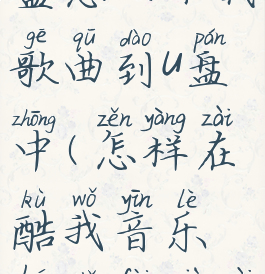 gē qū dào pán
歌曲到U盘
zhōng zěn yàng zài
中(怎样在
kù wǒ yīn lè
酷我音乐